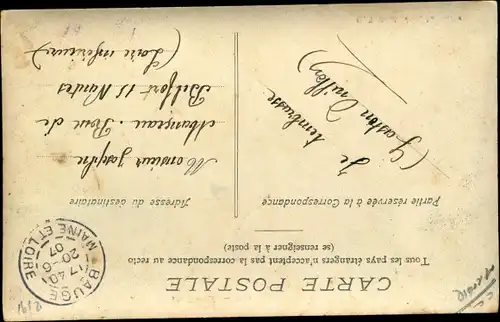 CARTE POSTALE
Tous les pays étrangers n'acceptent pas la correspondance au recto
(se renseigner à la poste)
Partie réservée à la Correspondance
Adresse du destinataire
Je t'embrasse
(Gaston
Monsieur Joseph
Rue de
Belfort 15 Nantes
(Loire inférieure)
BAUGÉ
17 40
20 - 6
07
MAINE ET LOIRE